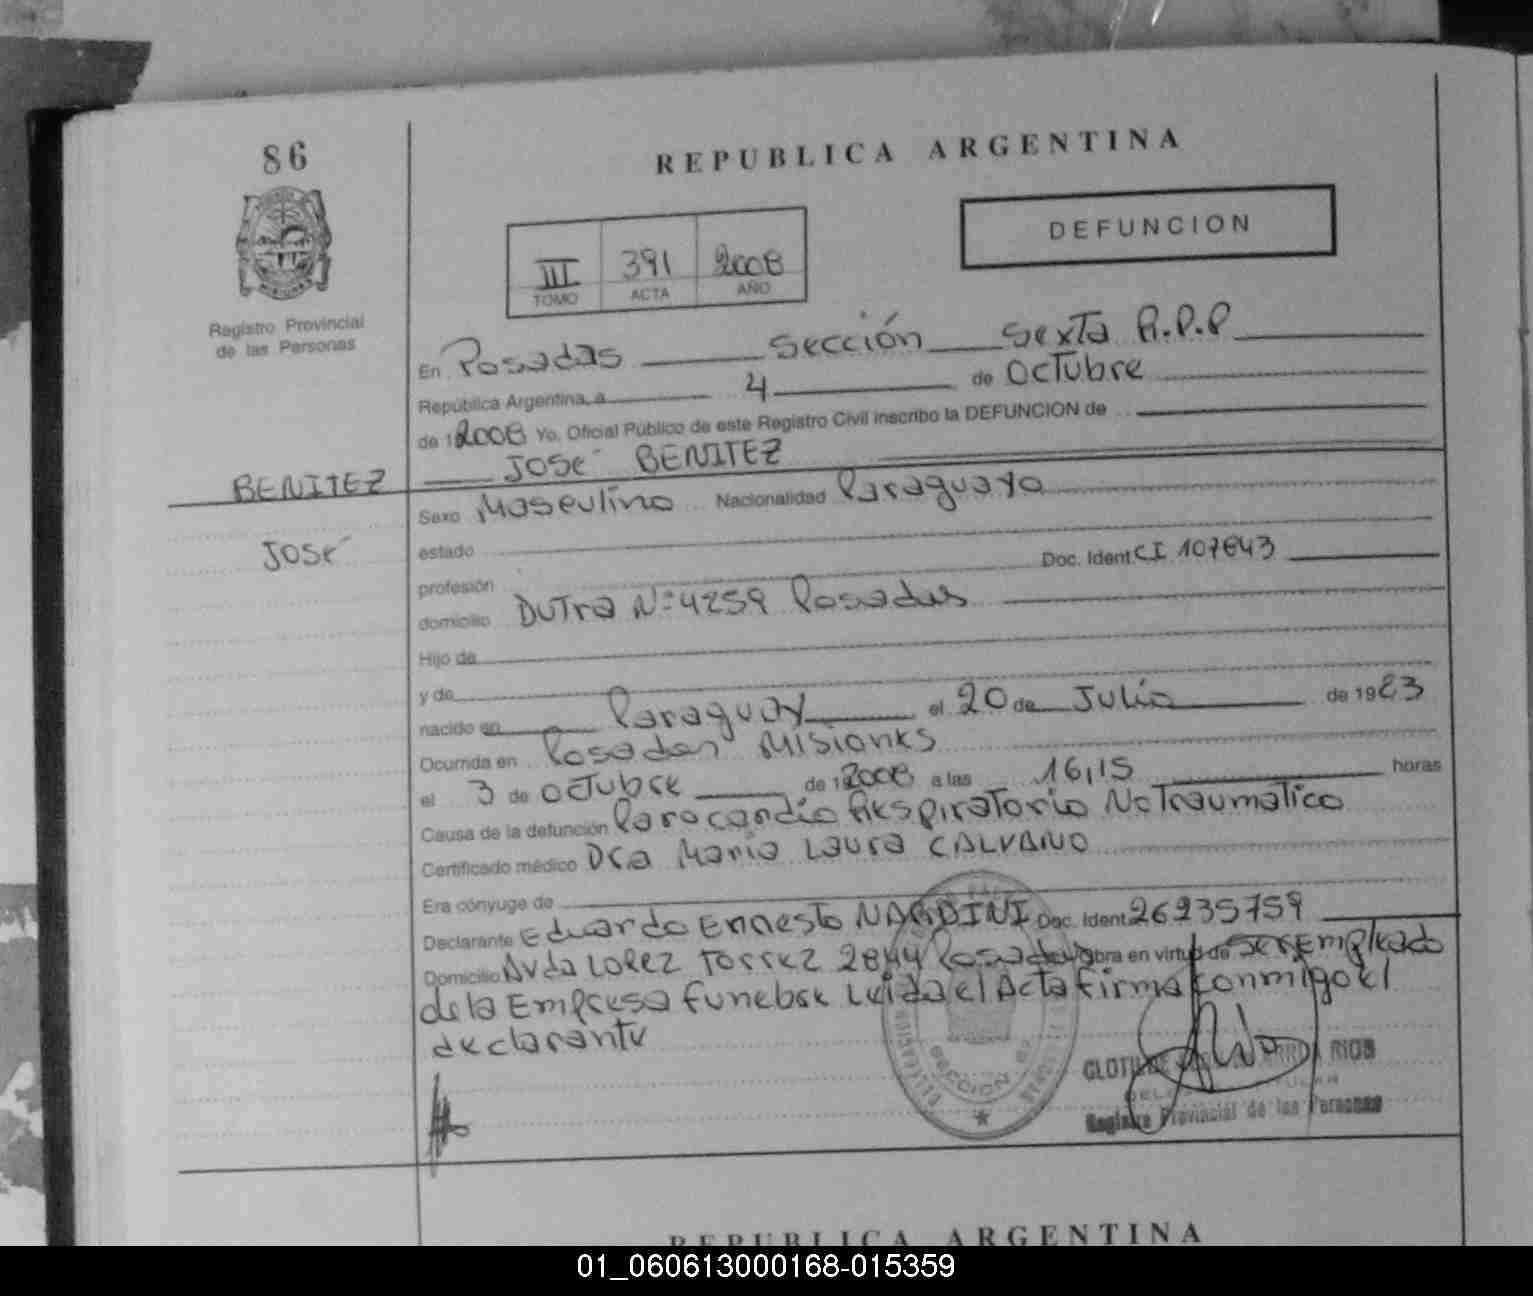 86
REPUBLICA ARGENTINA
DEFUNCION
III 391 2008
TOMO ACTA AÑO
Registro Provincial
de las Personas
En Posadas Sección Sexta R.P.P
República Argentina, a 4 de Octubre
de 12008 Yo, Oficial Público de este Registro Civil inscribo la DEFUNCION de
BENITEZ José BENITEZ
Sexo Masculino Nacionalidad Paraguaya
José
estado
profesión Doc. Ident. CI 107843
domicilio Dutra N=4259 Posadas
Hijo de
y de
nacido en Paraguay el 20 de Julio de 1983
Ocurrida en Posadas Misiones
el 3 de octubre de 12008 a las 16,15 horas
Causa de la defunción Parocardio Respiratorio No Traumatico
Certificado médico Dra Maria Laura CALVANO
Era cónyuge de
Declarante Eduardo Ernesto NARDINI Doc. Ident 26235759
Domicilio Avda Lopez Torrez 2844 Posadas obra en virtud de Ser Empleado
de la Empresa funebre Leida el Acta firma conmigo el
declarante
SECCION 6ª
CLOTILDE RIOS
Registro Provincial de las Personas
REPUBLICA ARGENTINA
01_060613000168-015359